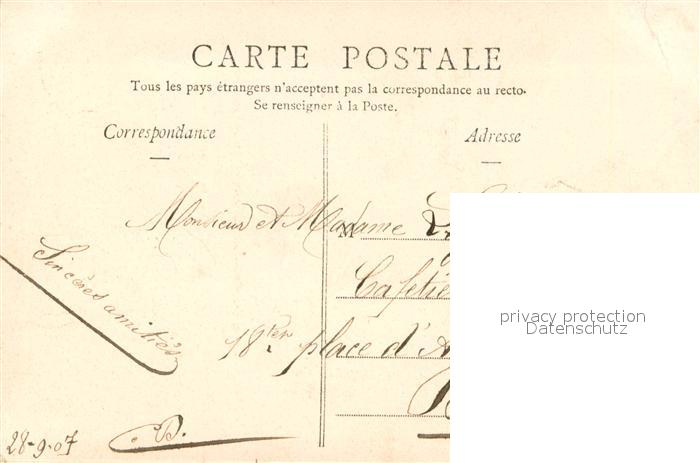 CARTE POSTALE
Tous les pays étrangers n'acceptent pas la correspondance au recto.
Se renseigner à la Poste.
Correspondance
Adresse
Monsieur et Madame
M
Cafetie
Sincères amitiés
18 ter place d'A
28-9-07
privacy protection
Datenschutz